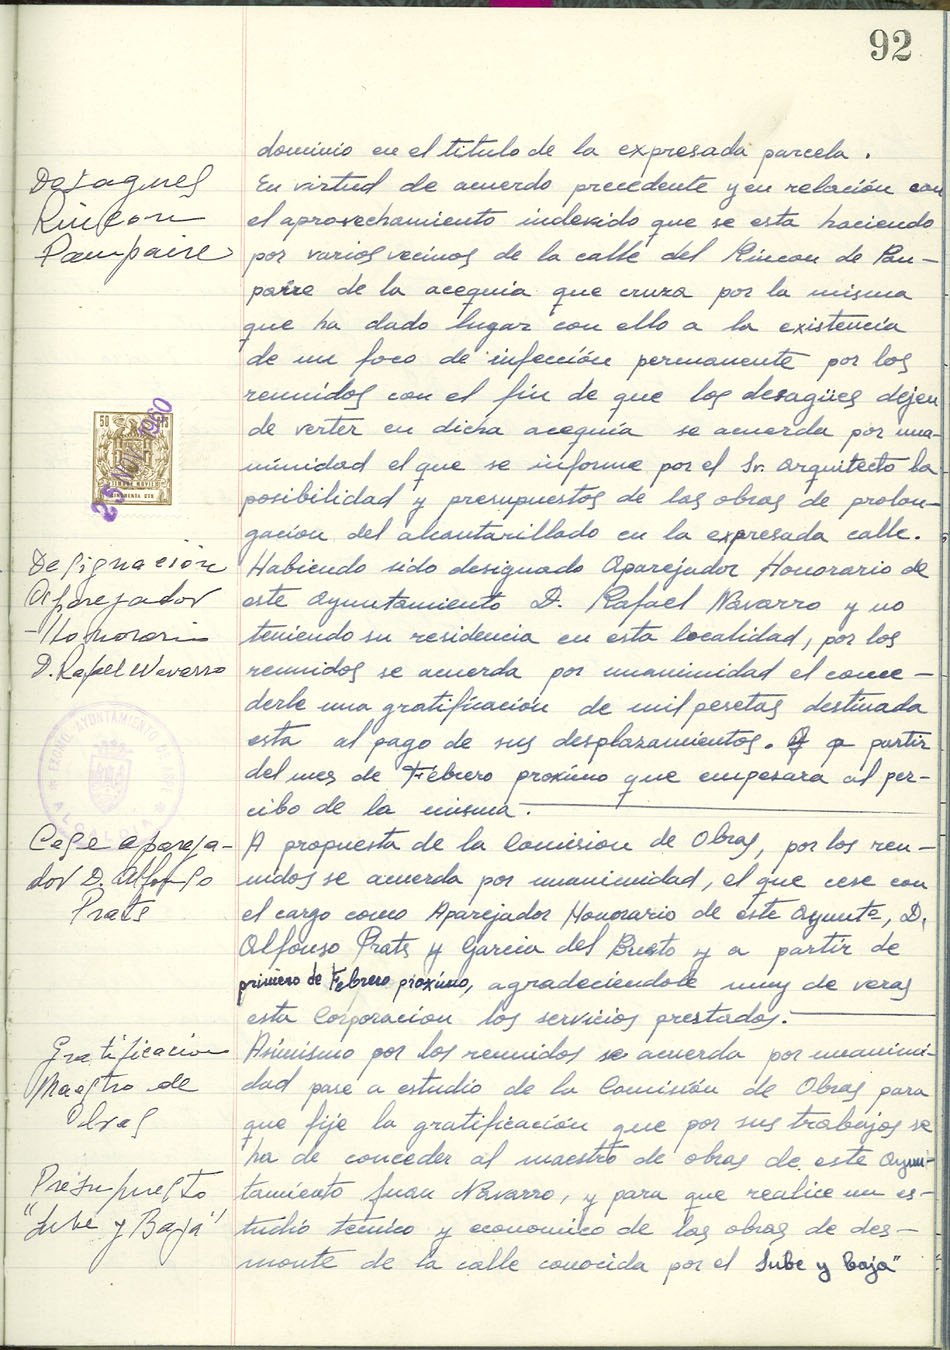 92
dominio en el titulo de la expresada parcela.
Desagues
Rincon
Pampaire
En virtud de acuerdo precedente y en relación con
el aprovechamiento indevido que se esta haciendo
por varios vecinos de la calle del Rincon de Pan-
paire de la acequia que cruza por la misma
que ha dado lugar con ello a la existencia
de un foco de infección permanente por los
reunidos con el fin de que los desagües dejen
de verter en dicha acequia se acuerda por una-
nimidad el que se informe por el Sr. Arquitecto la
posibilidad y presupuestos de las obras de prolon-
gacion del alcantarillado en la expresada calle.
50
25 NOV. 1960
TIMBRE MOVIL
CINCUENTA CTS
Designacion
Aparejador
Honorario
D. Rafael Navarro
Habiendo sido designado Aparejador Honorario de
este Ayuntamiento D. Rafael Navarro y no
teniendo su residencia en esta localidad, por los
reunidos se acuerda por unanimidad el conce-
derle una gratificación de mil pesetas destinada
esta al pago de sus desplazamientos. a partir
del mes de Febrero proximo que empesara al per-
cibo de la misma.
EXCMO. AYUNTAMIENTO DE ASPE
ALCALDIA
Cese apareja-
dor D. Alfonso
Prats
A propuesta de la Comision de Obras, por los reu-
nidos se acuerda por unanimidad, el que cese con
el cargo como Aparejador Honorario de este Ayuntº, D.
Alfonso Prats y Garcia del Busto y a partir de
primero de Febrero proximo, agradeciendole muy de veras
esta Corporacion los servicios prestados.
Gratificacion
Maestro de
Obras
Asimismo por los reunidos se acuerda por unanimi-
dad pase a estudio de la Comisión de Obras para
que fije la gratificación que por sus trabajos se
ha de conceder al maestro de obras de este Ayun-
tamiento Juan Navarro, y para que realice un es-
tudio tecnico y economico de las obras de des-
monte de la calle conocida por el Sube y baja"
Presupuesto
"Sube y Baja"